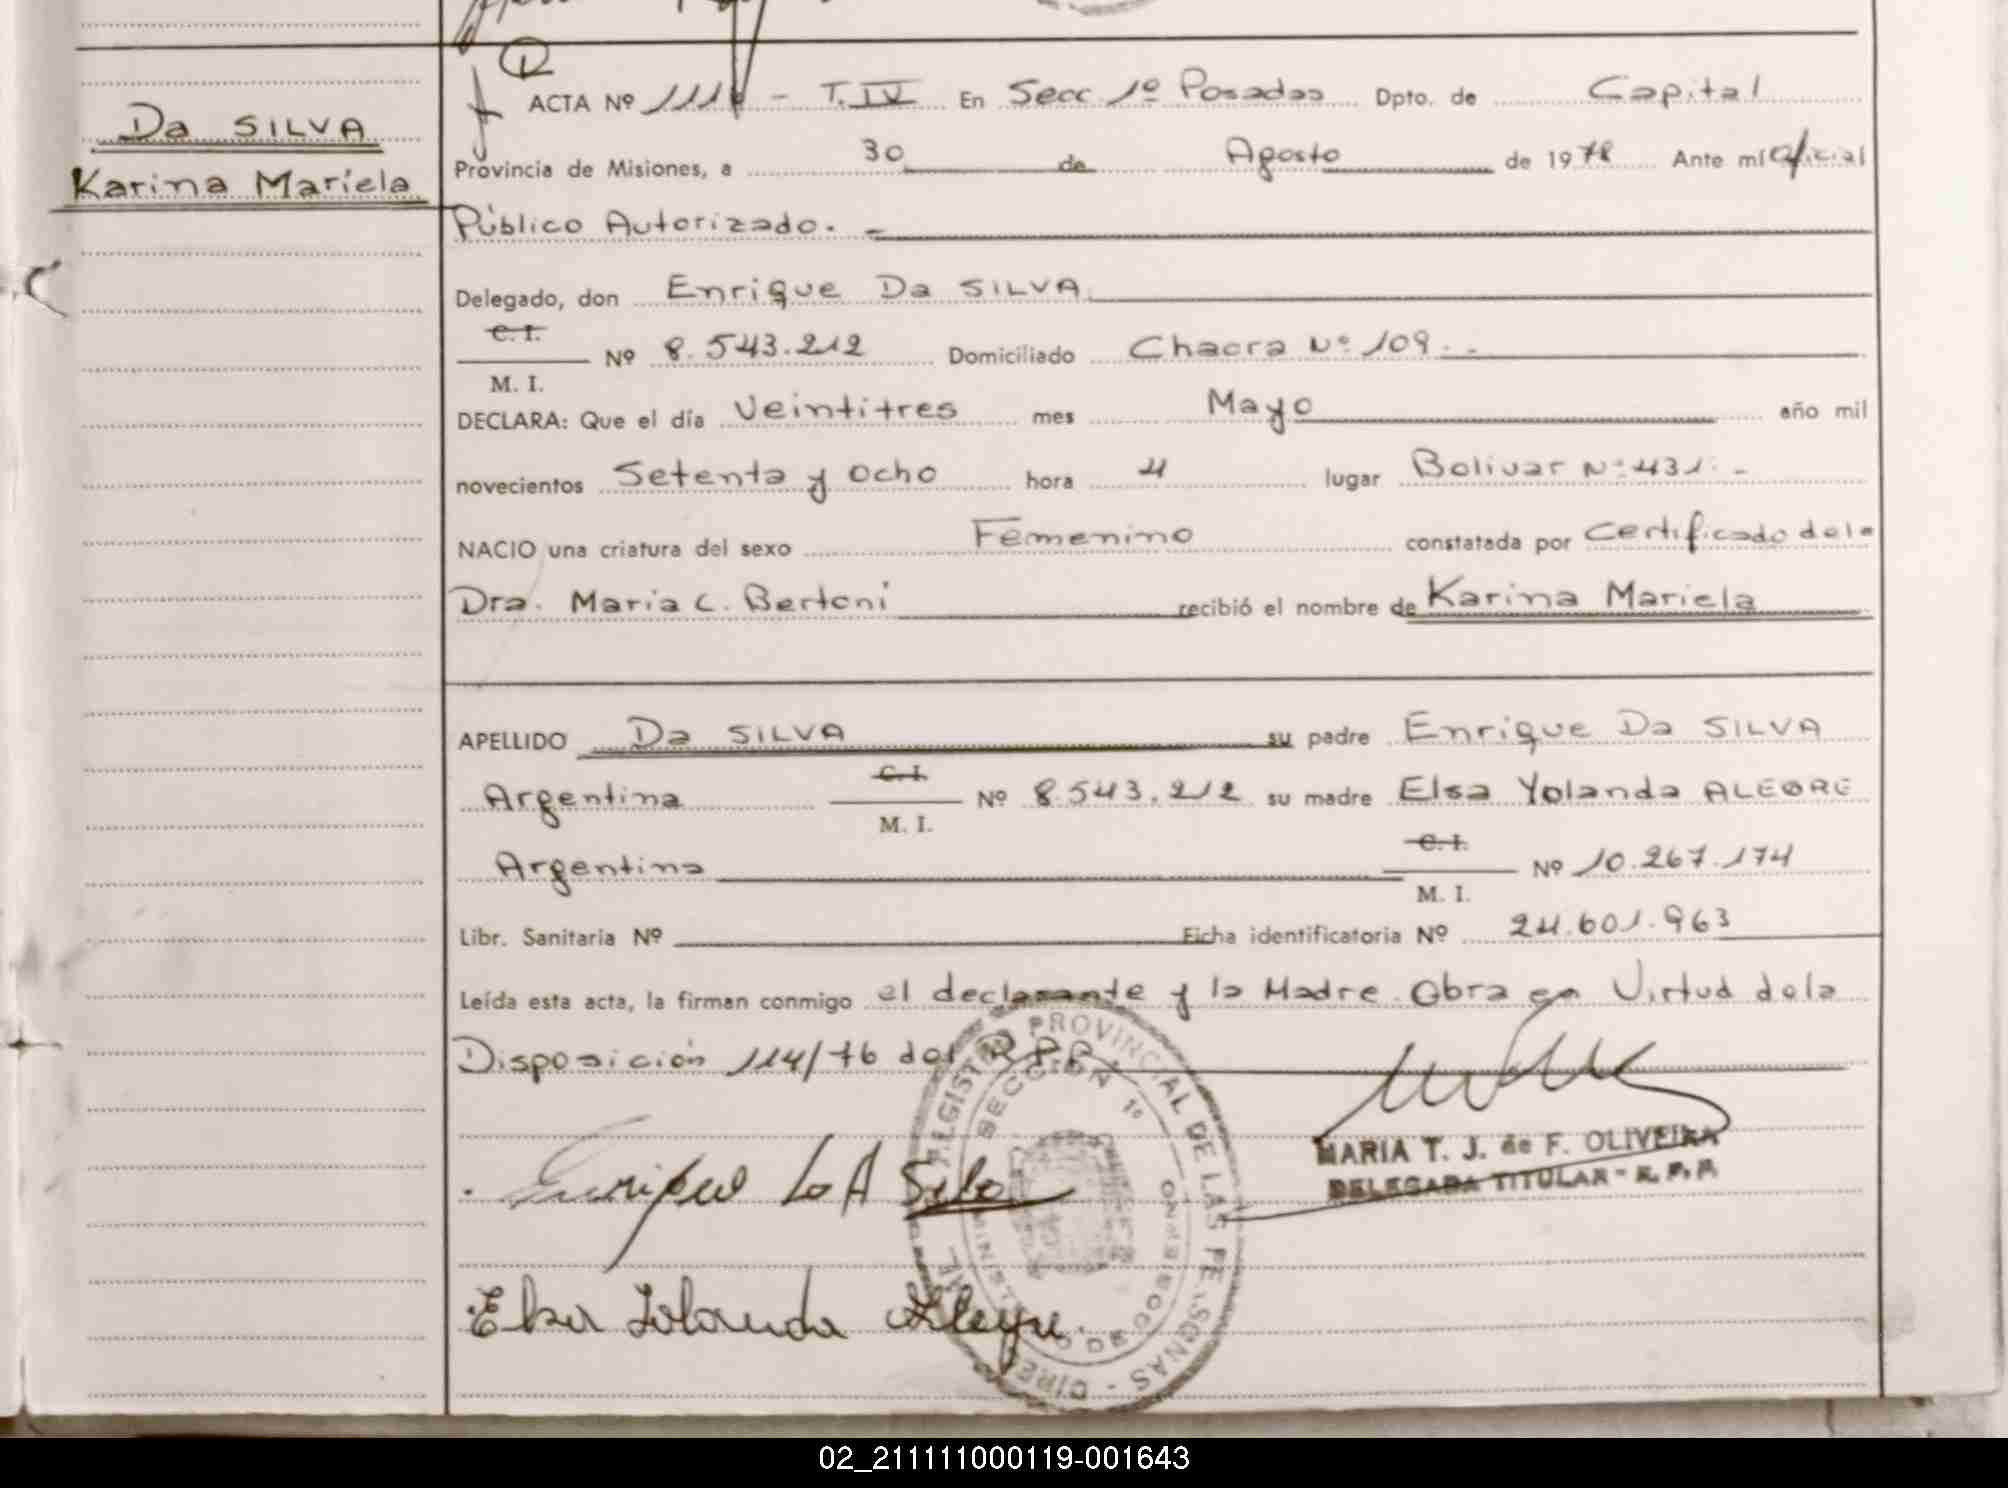 Da SILVA
Karina Mariela
ACTA Nº 1118 - T. IV En Secc. 1º Posadas Dpto. de Capital
Provincia de Misiones, a 30 de Agosto de 1978 Ante mí Oficial
Público Autorizado. -
Delegado, don Enrique Da SILVA
C. I.
Nº 8.543.212 Domiciliado Chacra Nº 109. -
M. I.
DECLARA: Que el día Veintitres mes Mayo año mil
novecientos Setenta y Ocho hora 4 lugar Bolivar Nº 431. -
NACIO una criatura del sexo Femenino constatada por Certificado de la
Dra. Maria C. Bertoni recibió el nombre de Karina Mariela
APELLIDO Da SILVA su padre Enrique Da SILVA
C. I.
Argentina Nº 8.543.212 su madre Elsa Yolanda ALEGRE
M. I.
C. I.
Argentina Nº 10.267.174
M. I.
Libr. Sanitaria Nº Ficha identificatoria Nº 24.601.963
Leída esta acta, la firman conmigo el declarante y la Madre. Obra en Virtud de la
Disposición 114/76 del R.P.P.
REGISTRO PROVINCIAL DE LAS PERSONAS
SECCION 1º
MARIA T. J. de F. OLIVEIRA
DELEGADA TITULAR - R. P. P.
Enrique Da Silva
Elsa Yolanda Alegre
02_211111000119-001643